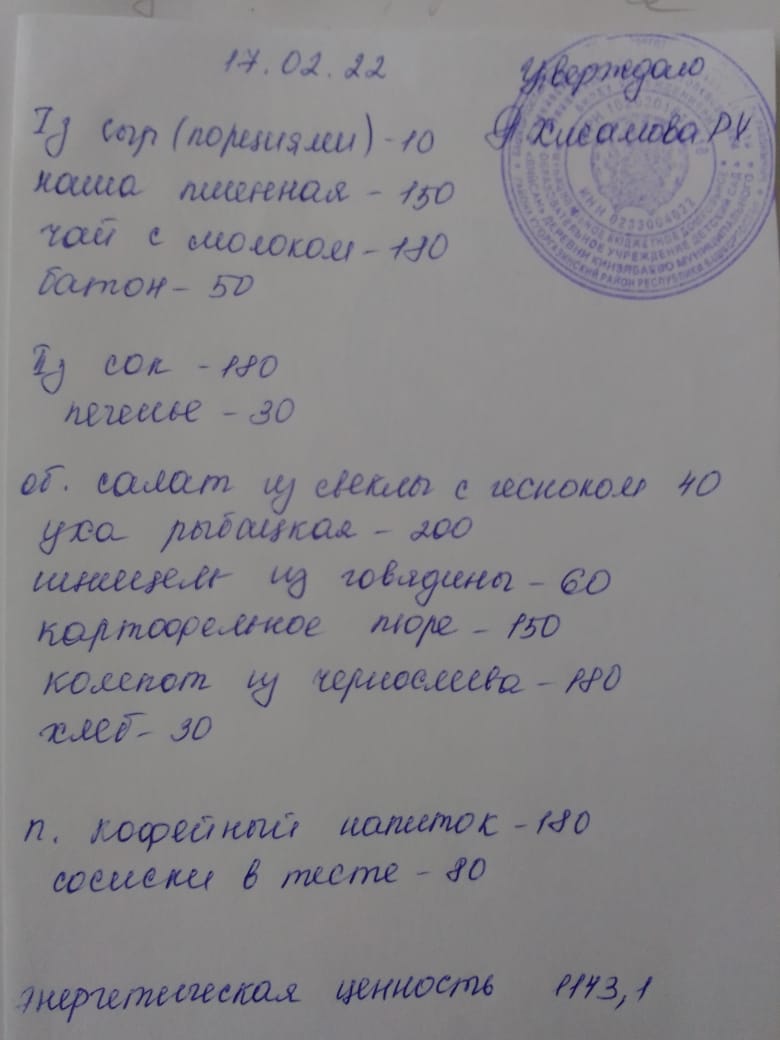 17.02.22
Утверждаю
Хисамова Р.Х
Iз сыр (порциями) - 10
каша пшенная - 150
чай с молоком - 180
батон - 50
IIз сок - 180
печенье - 30
об. салат из свеклы с чесноком 40
уха рыбацкая - 200
шницель из говядины - 60
картофельное пюре - 150
компот из чернослива - 180
хлеб - 30
п. кофейный напиток - 180
сосиски в тесте - 80
энергетическая ценность 1143,1
ИНН
УЧРЕЖДЕНИЕ ДЕТСКИЙ САД
ДЕРЕВНИ КИНЗЯБАЕВО МУНИЦИПАЛЬНОГО
РАЙОН РЕСПУБЛИКИ